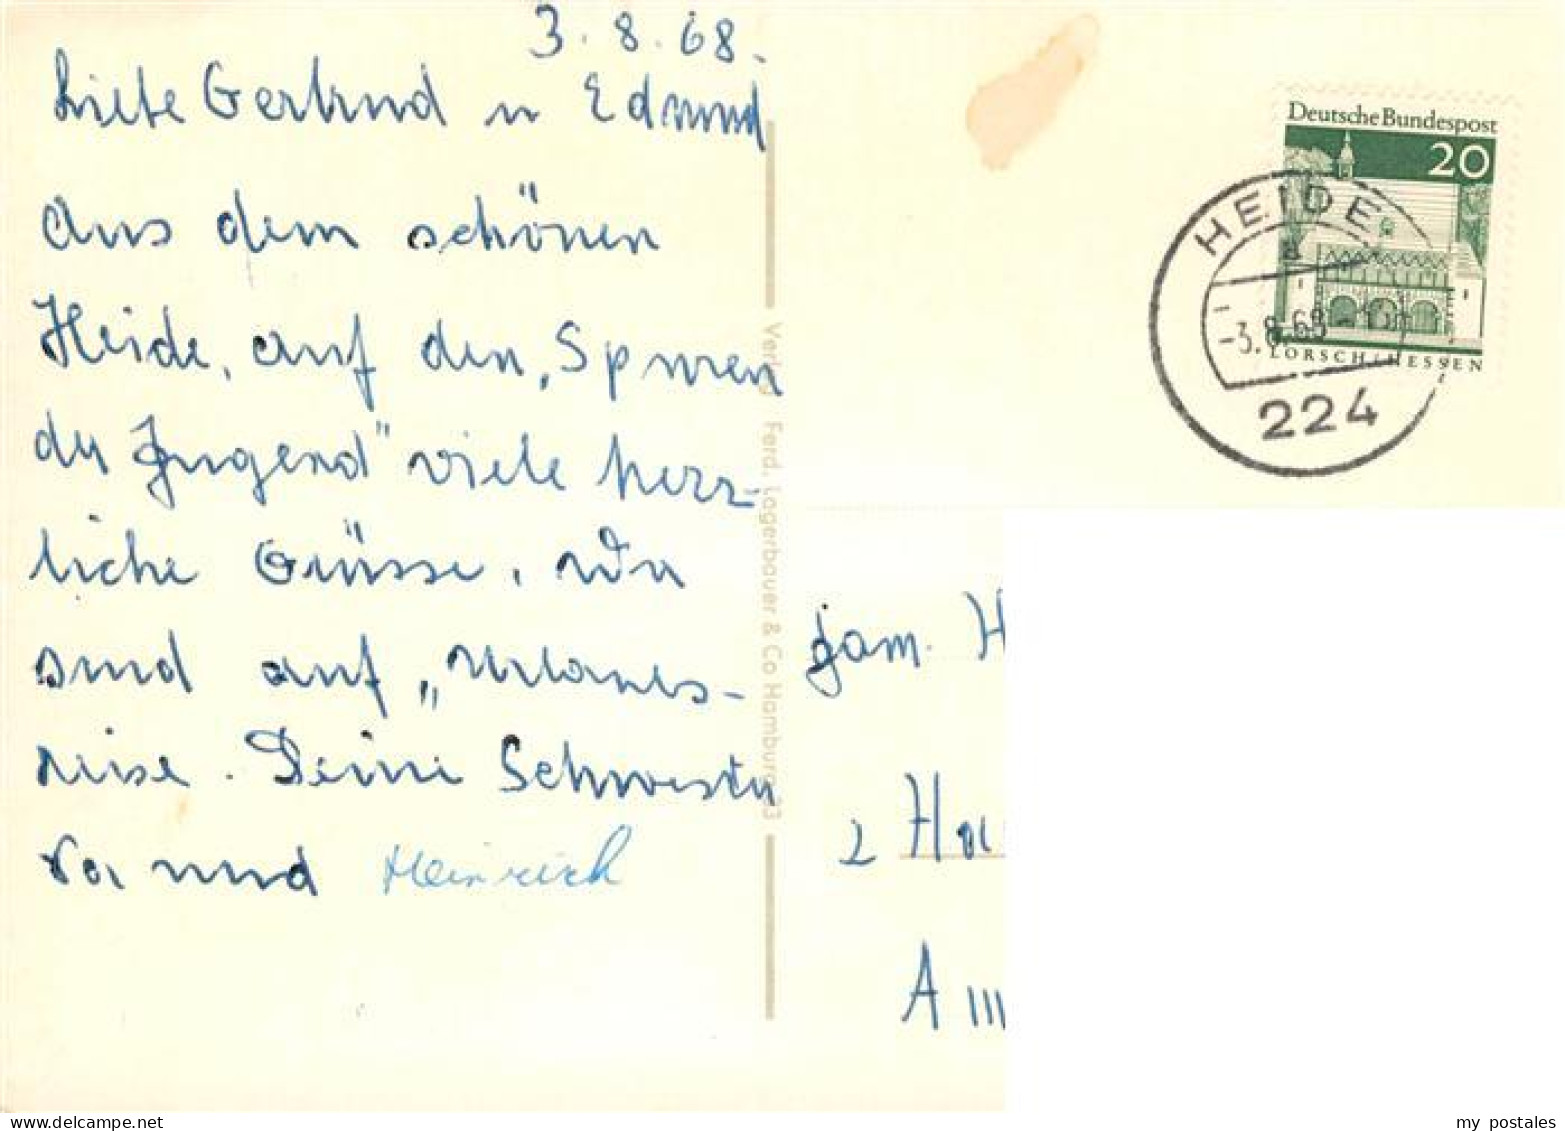 3.8.68.
Liebe Gertrud u Edmund
Aus dem schönen
Heide, auf den „Spuren
der Jugend" viele herz-
liche Grüsse. Wir
sind auf „Urlaubs-
reise. Deine Schwester
und Heinrich
Verlag Ferd. Lagerbauer & Co Hamburg 23
Deutsche Bundespost
20
LORSCH/HESSEN
HEIDE
-3.8.68
224
Fam. H
2 Ha
A
my postales